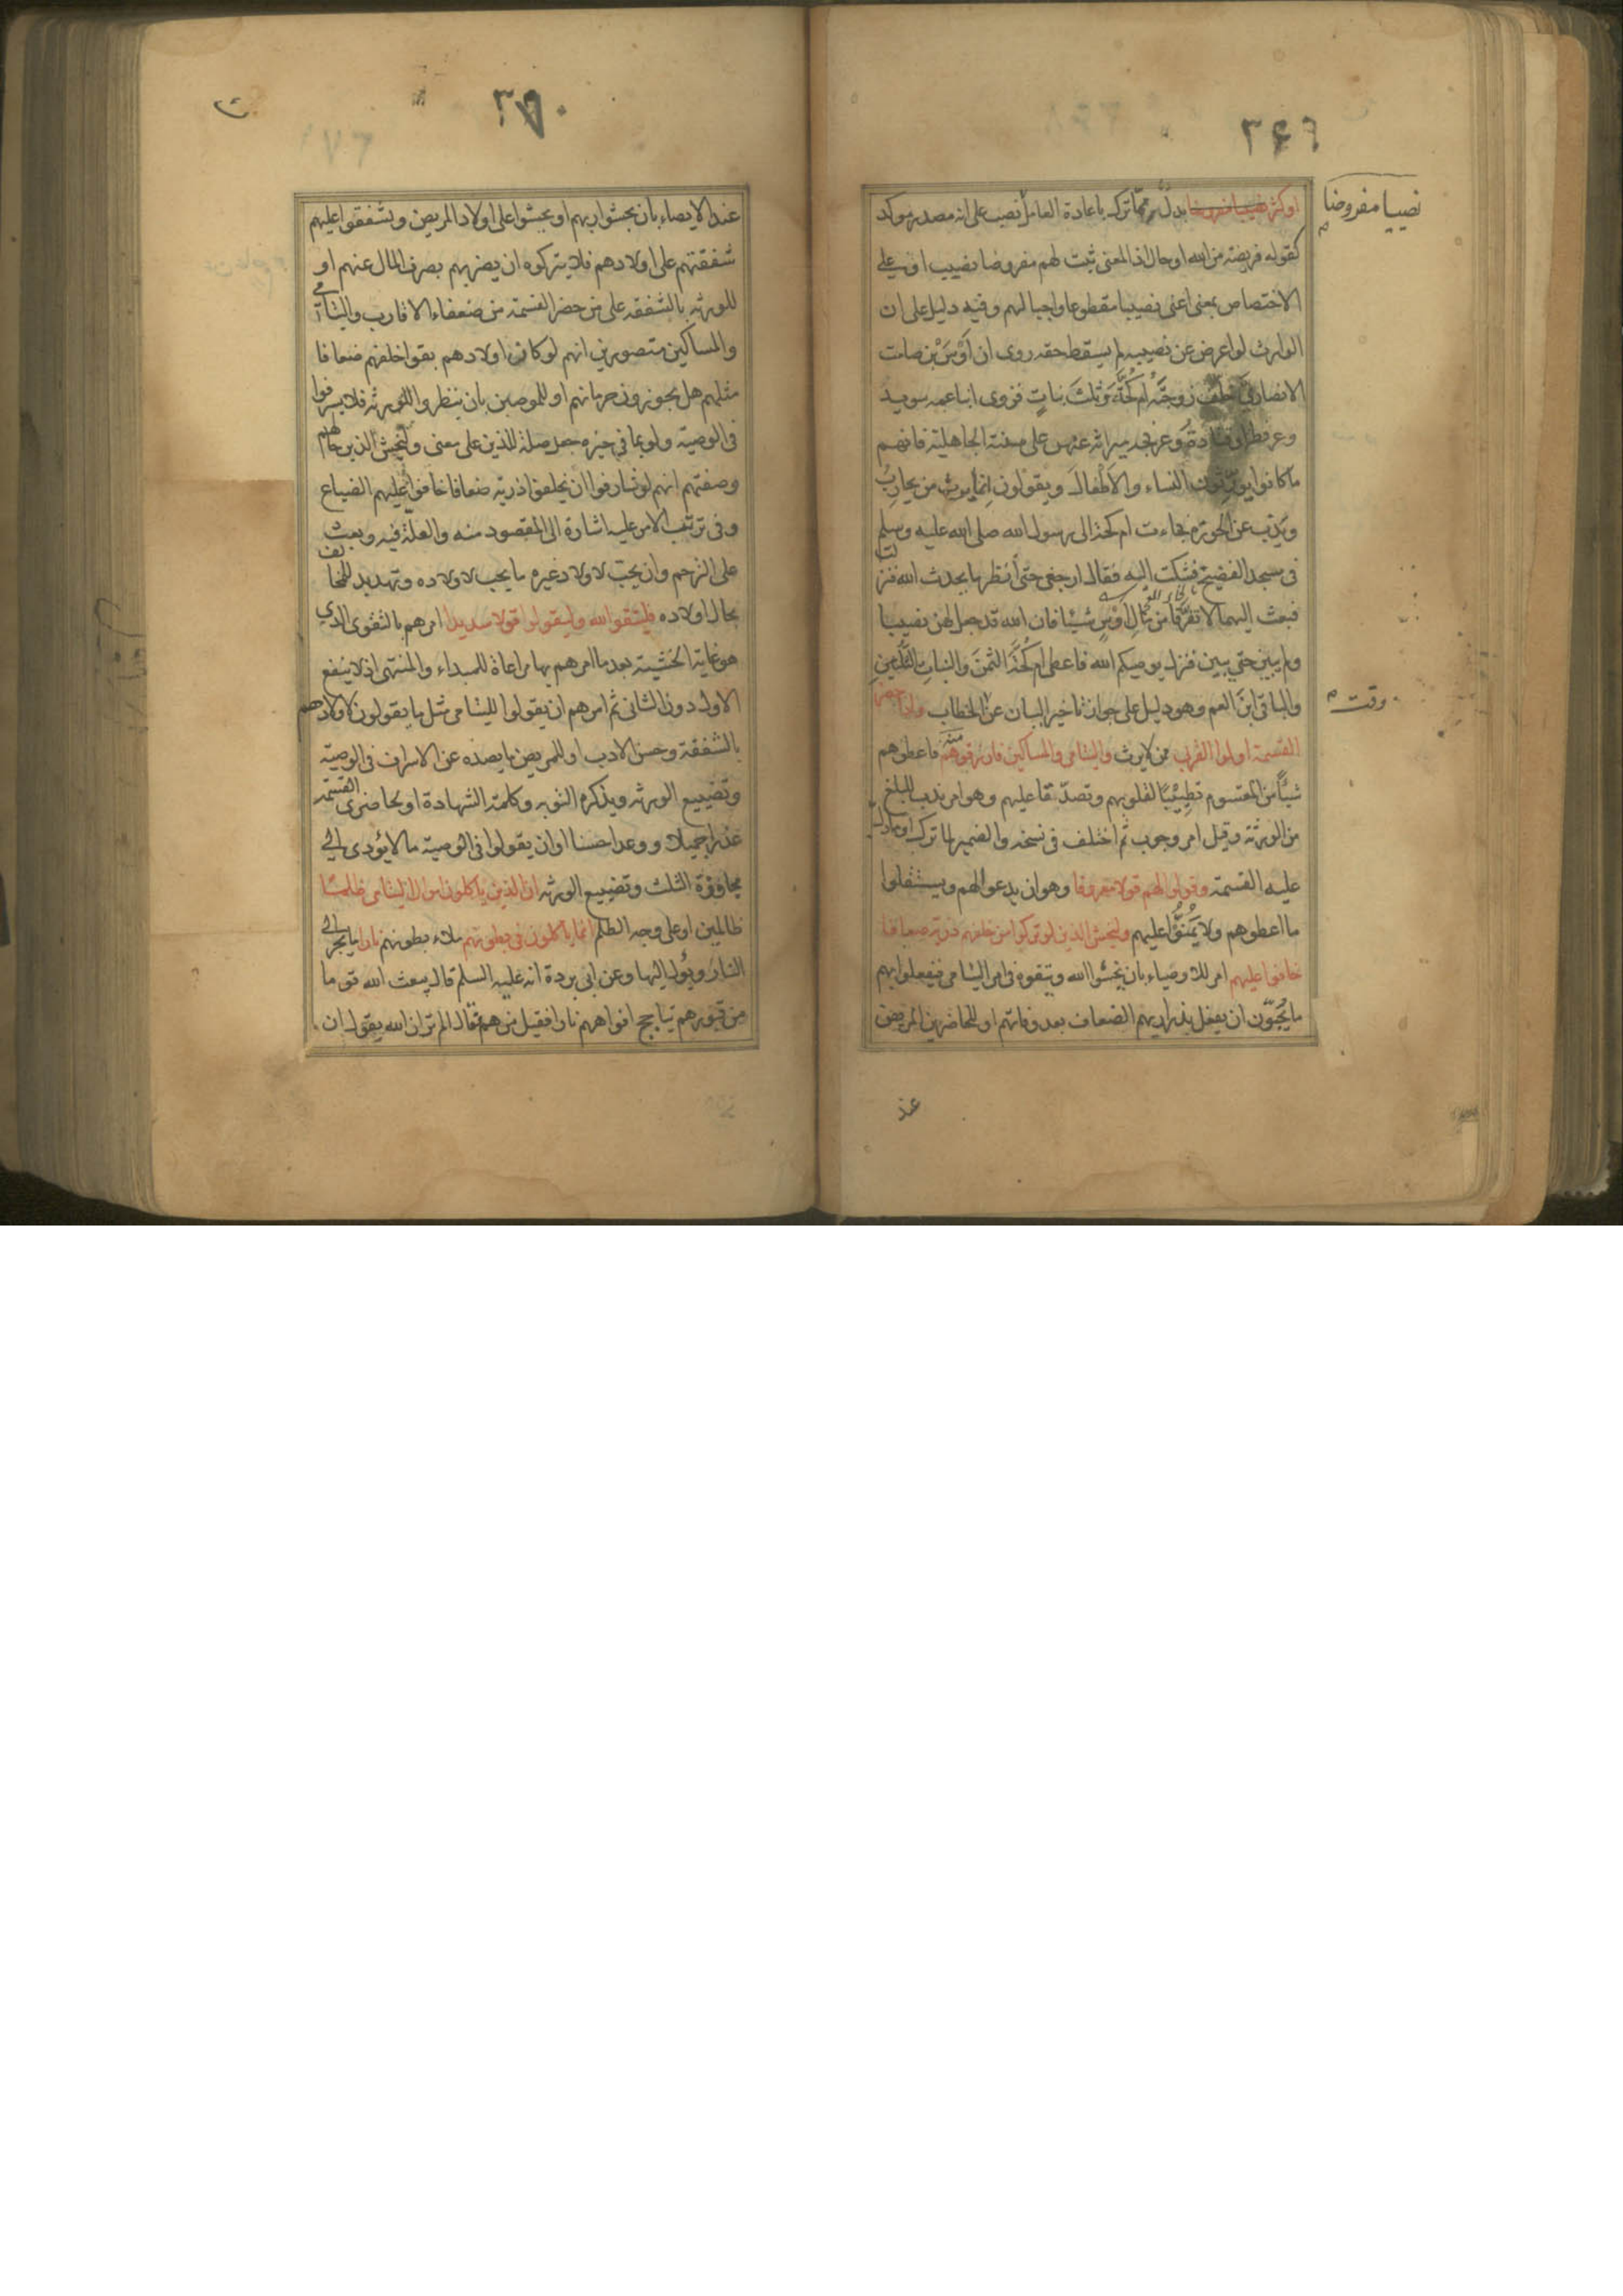 ٣٦٩
نصيبا مفروضا
او كثر نصيبا مفروضا بدل مما ترك باعادة العامل نصب على انه مصدر موكد
كقوله فريضة من الله او حال اذ المعنى ثبت لهم مفروضا نصيب او على
الاختصاص بمعنى اعنى نصيبا مقطوعا واجبا لهم وفيه دليل على ان
الوارث لو اعرض عن نصيبه لم يسقط حقه روى ان اوس بن صامت
الانصارى خلف زوجته ام كحة وثلث بنات فزوى ابنا عمه سويد
وعرفطة او قتادة وعرفجه ميراثه عنهن على سنة الجاهلية فانهم
ما كانوا يورثون النساء والاطفال ويقولون انما يرث من يحارب
ويذب عن الحوزة فجاءت ام كحة الى رسول الله صلى الله عليه وسلم
فى مسجد الفضيخ فشكت اليه فقال ارجعى حتى أنظر ما يحدث الله فنزلت
فبعث اليهما لا تفرقا من مال اوس شيئا فان الله قد جعل لهن نصيبا
ولم يبين حتى يبين فنزل يوصيكم الله فاعطى ام كحة الثمن والبنات الثلثين
والباقى ابن العم وهو دليل على جواز تاخير البيان عن الخطاب واذا حضر
وقت
القسمة اولوا القربى ممن لا يرث واليتامى والمساكين فارزقوهم منه فاعطوهم
شيئا من المقسوم تطييبا لقلوبهم وتصدقا عليهم وهو امر ندب للبلغ
من الورثة وقيل امر وجوب ثم اختلف فى نسخه والضمير لما ترك او ما دل
عليه القسمة وقولوا لهم قولا معروفا وهو ان يدعوا لهم ويستقلوا
ما اعطوهم ولا يمنوا عليهم وليخش الذين لو تركوا من خلفهم ذرية ضعافا
خافوا عليهم امر للاوصياء بان يخشوا الله ويتقوه فى امر اليتامى فيفعلوا بهم
ما يحبون ان يفعل بذراريهم الضعاف بعد وفاتهم او للحاضرين المريض
عند
٣٧٠
عند الايصاء بان يخشوا ربهم او يخشوا على اولاد المريض ويشفقوا عليهم
شفقتهم على اولادهم فلا يتركوه ان يضربهم بصرف المال عنهم او
للورثه بالشفقه على من حضر القسمة من ضعفاء الاقارب واليتامى
والمساكين متصورين انهم لو كانوا اولادهم بقوا خلفهم ضعافا
مثلهم هل يجوزون حرمانهم او للموصين بان ينظروا للورثه فلا يسرفوا
فى الوصية ولو بما فى حيزه جعل صلة للذين على معنى وليخش الذين حالهم
وصفتهم انهم لو شارفوا ان يخلفوا ذرية ضعافا خافوا عليهم الضياع
وفى ترتيب الامر عليه اشارة الى المقصود منه والعلة فيه وبعث
على الترحم وان يحب لاولاد غيره ما يحب لاولاده وتهديد للمخالف
بحال اولاده فليتقوا الله وليقولوا قولا سديدا امرهم بالتقوى الذي
هو غاية الخشية بعد ما امرهم بها مراعاة للمبداء والمنتهى اذ لا ينفع
الاول دون الثانى ثم امرهم ان يقولوا لليتامى مثل ما يقولون لاولادهم
بالشفقة وحسن الادب او للمريض ما يصده عن الاسراف فى الوصية
وتضييع الورثه ويذكره التوبه وكلمة الشهادة او لحاضرى القسمة
عذرا جميلا ووعدا حسنا او ان يقولوا فى الوصية ما لا يؤدى الى
مجاوزة الثلث وتضييع الورثه ان الذين ياكلون اموال اليتامى ظلما
ظالمين او على وجه الظلم انما ياكلون فى بطونهم ملاء بطونهم نارا ما يجر الى
النار ويؤل اليها وعن ابى بردة انه عليه السلم قال يبعث الله قوما
من قبورهم تتاجج افواههم نارا فقيل من هم فقال الم تر ان الله يقول ان